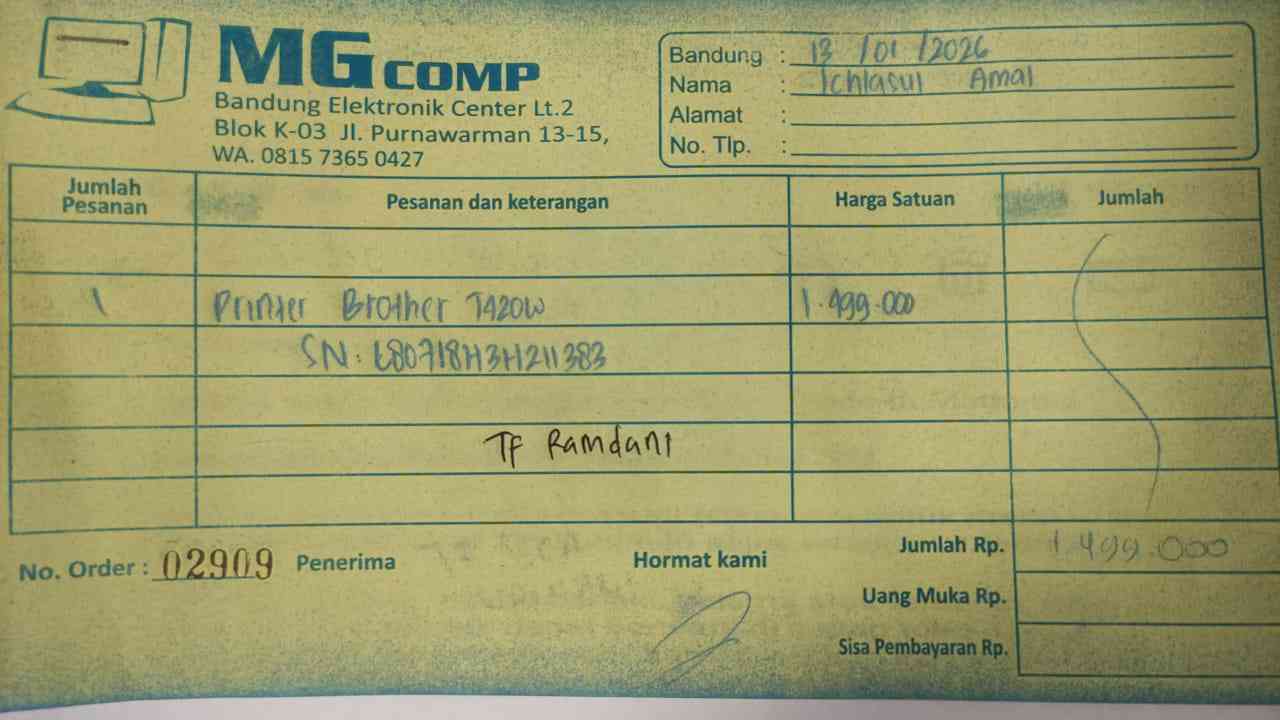 MG COMP
Bandung Elektronik Center Lt.2
Blok K-03 Jl. Purnawarman 13-15,
WA. 0815 7365 0427
Bandung : 13 /01 /2026
Nama : Ichlasul Amal
Alamat :
No. Tlp. :
Jumlah Pesanan Pesanan dan keterangan Harga Satuan Jumlah
1 Printer Brother T420W 1.499.000
SN: E80718H3H211383
TF Ramdani
No. Order : 02909 Penerima Hormat kami Jumlah Rp. 1.499.000
Uang Muka Rp.
Sisa Pembayaran Rp.